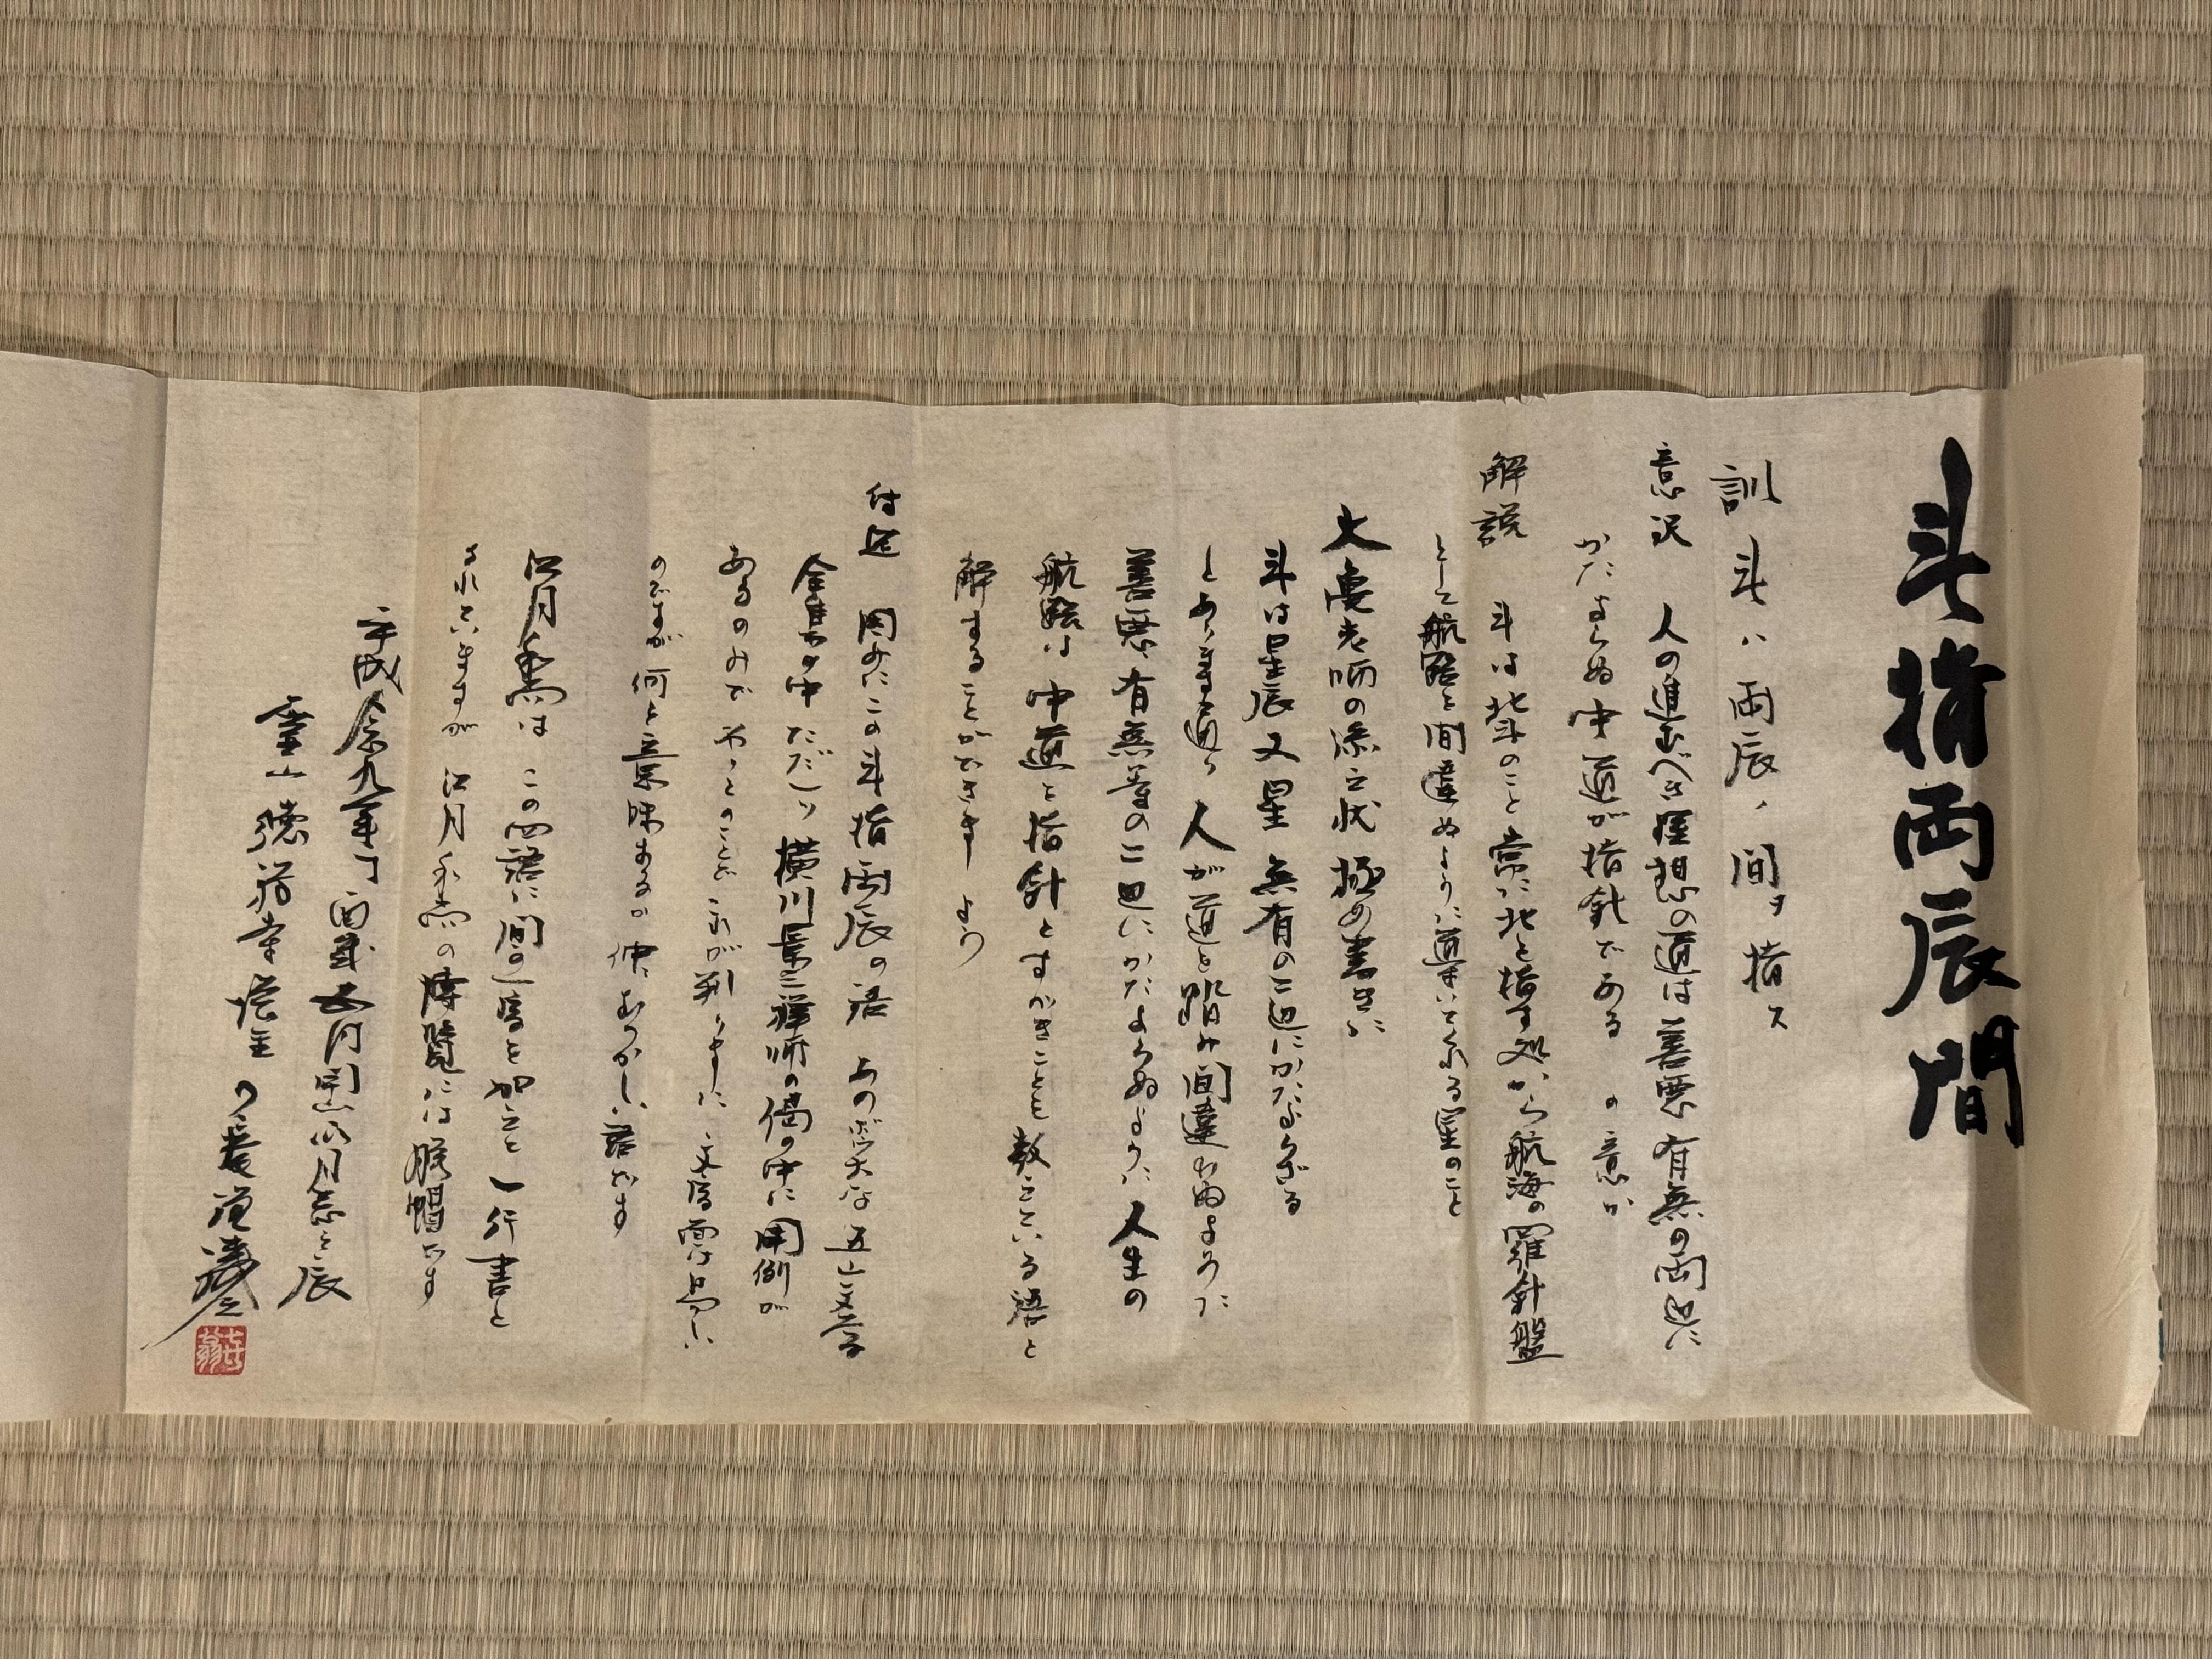 斗指両辰間
訓 斗ハ両辰ノ間ヲ指ス
意訳 人の進むべき理想の道は善悪有無の両辺に
かたよらぬ中道が指針である の意か
解説 斗は北斗のこと 常に北を指す処から航海の羅針盤
として航路を間違ぬように導いてくれる星のこと
大亀老師の添え状 極め書きに
斗は星辰又星 無有の二辺にかたよらざる
とあります通り 人が道を踏み間違わぬように
善悪 有無等の二辺にかたよらぬように 人生の
航路は中道を指針とすべきことを教えている語と
解することができましょう
付記 因みにこの斗指両辰の語 あのぼう大な五山文学
全集の中 ただ一ツ 横川景三禅師の偈の中に用例が
あるのみで やっとのことで これが判りました 文字面は易しい
のですが 何と意味あるか 仲々むつかしい語です
江月和尚は この四語に間の一字を加えて一行書と
されていますが 江月和尚の博覧には脱帽です
平成念九年丁酉歳 五月
霊山徳禅寺
七十翁